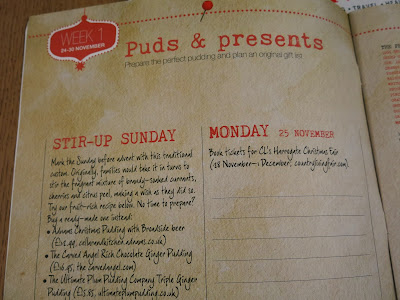 WEEK 1
24-30 NOVEMBER
Puds & presents
Prepare the perfect pudding and plan an original gift list
STIR-UP SUNDAY
Mark the Sunday before advent with this traditional
custom. Originally, families would take it in turns to
stir the fragrant mixture of brandy-soaked currants,
cherries and citrus peel, making a wish as they did so.
Try our fruit-rich recipe below. No time to prepare?
Buy a ready-made one instead:
• Adnams Christmas Pudding with Broadside beer
(£12.99, cellarandkitchen.adnams.co.uk)
• The Carved Angel Rich Chocolate Ginger Pudding
(£10.95, thecarvedangel.com)
• The Ultimate Plum Pudding Company Triple Ginger
Pudding (£5.85, ultimateplumpudding.co.uk)
MONDAY 25 NOVEMBER
Book tickets for CL's Harrogate Christmas Fair
(28 November-1 December, countrylivingfair.com).